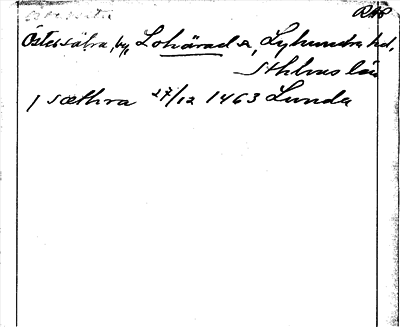 RAP
Östersätra, by, Lohärad sn, Lyhundra hd,
Sthlms län
j sæthra 27/12 1463 Lunda